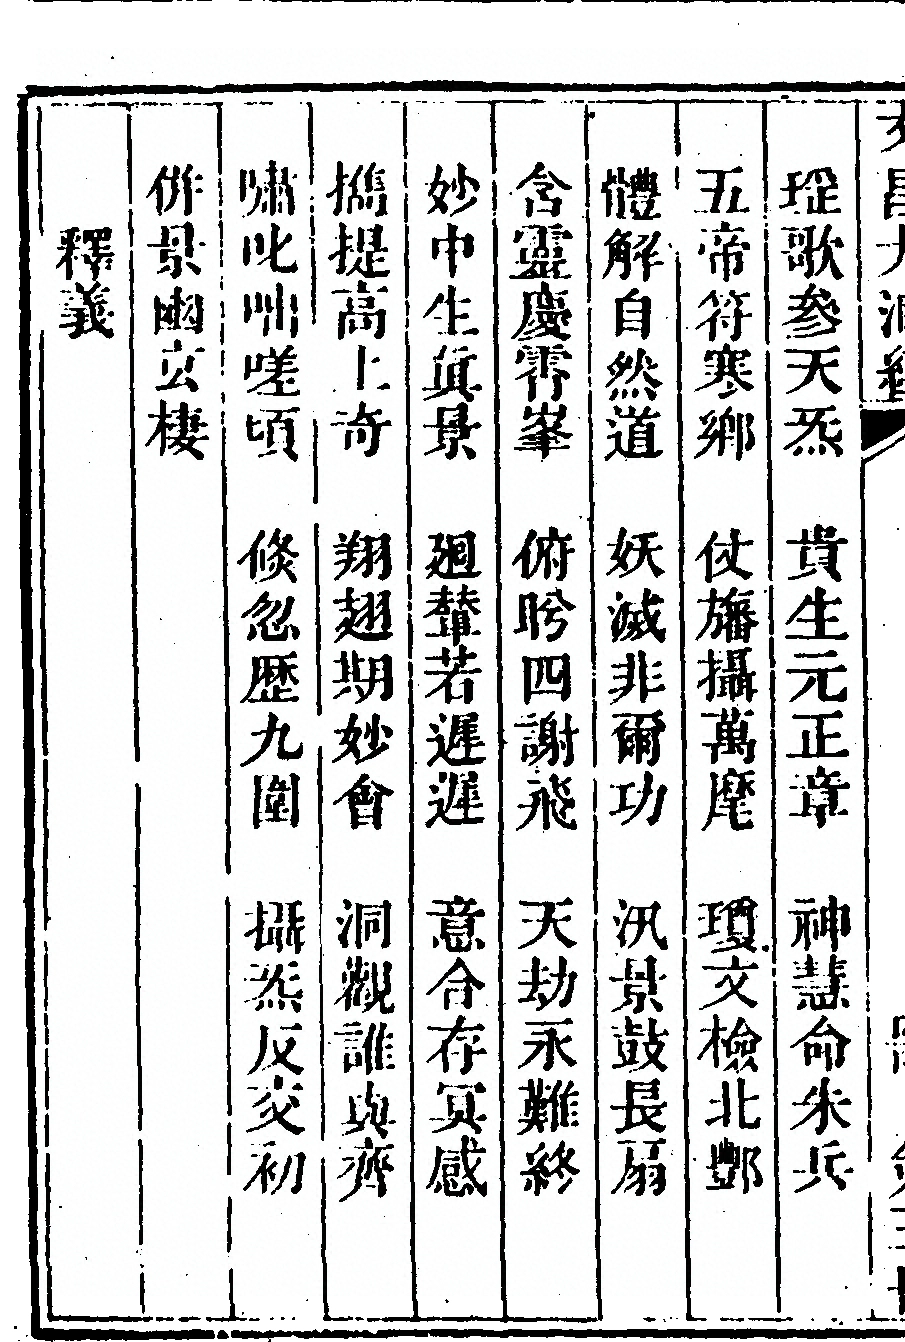 瑤歌參天炁　貴生元正章　神慧命朱兵
五帝符寒鄉　仗旛攝萬麾　瓊文檢北酆
體解自然道　妖滅非爾功　汎景鼓長扇
含靈慶霄峯　俯盻四謝飛　天劫永難終
妙中生眞景　廻輦若遲遲　意合存冥感
擕提高上奇　翔翹期妙會　洞觀誰與齊
嘯叱咄嗟頃　倐忽歷九圍　攝炁反交初
倂景幽玄棲
釋義